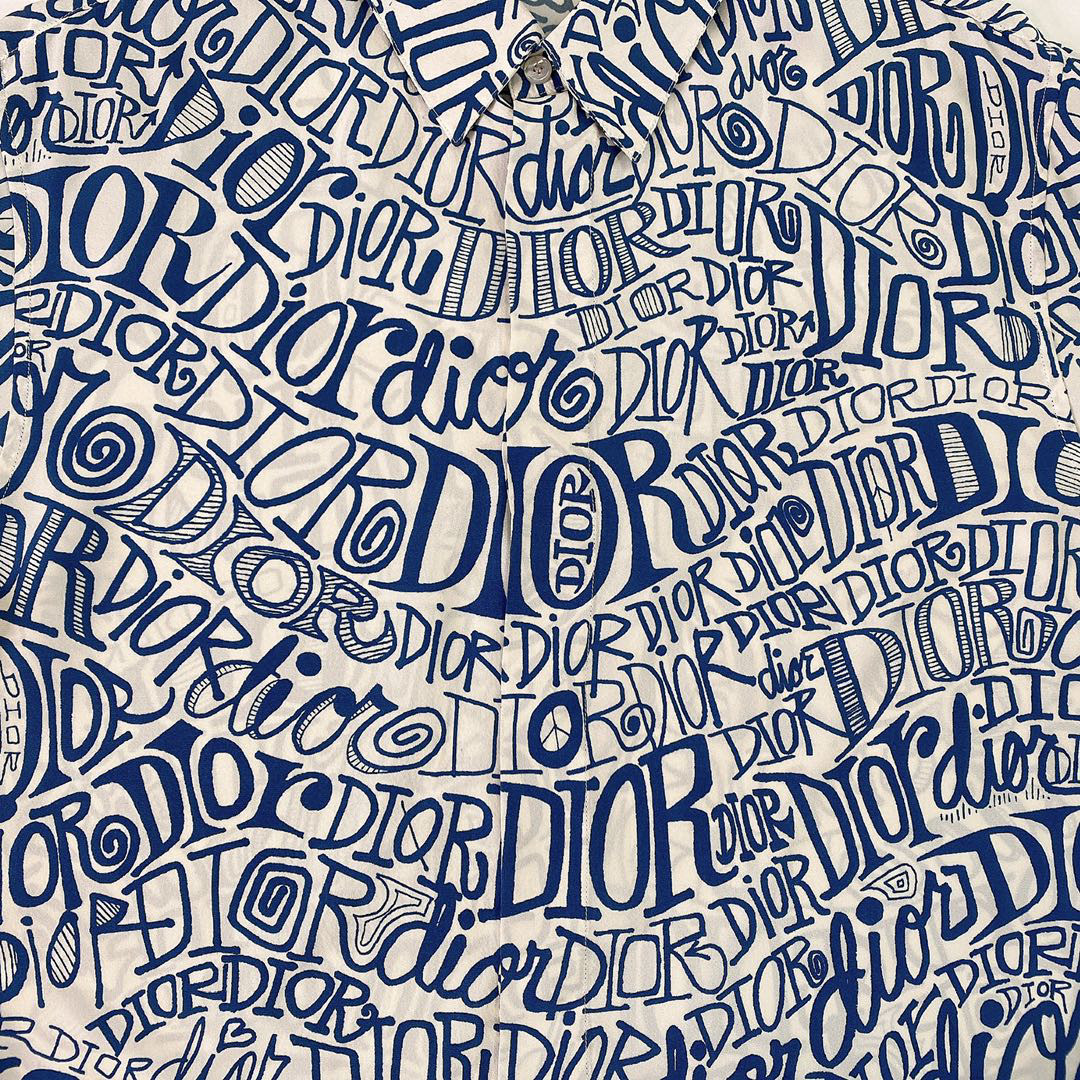 DIOR DIOR DIOR DIOR
DIOR dior DIOR
DIOR Dior DIOR DIOR dior DIOR DIOR DIOR DIOR
DIOR DiOR DIOR DIOR DIOR DIOR
DIOR DIOR DIOR DIOR
DIOR Dior dior DIOR DIOR DIOR
DIOR DIOR DIOR DIOR DIOR
DIOR DIOR DIOR DIOR DIOR
DIOR DIOR DIOR DIOR DIOR DIOR
DiOR dior DIOR DIOR dior DIOR
DIOR DIOR DIOR DIOR
DIOR Dior DIOR DIOR DIOR DIOR dior
DIOR dior DIOR DIOR dior
DIOR DIOR DIOR DIOR DIOR
DIOR dior DIOR DIOR dior DIOR